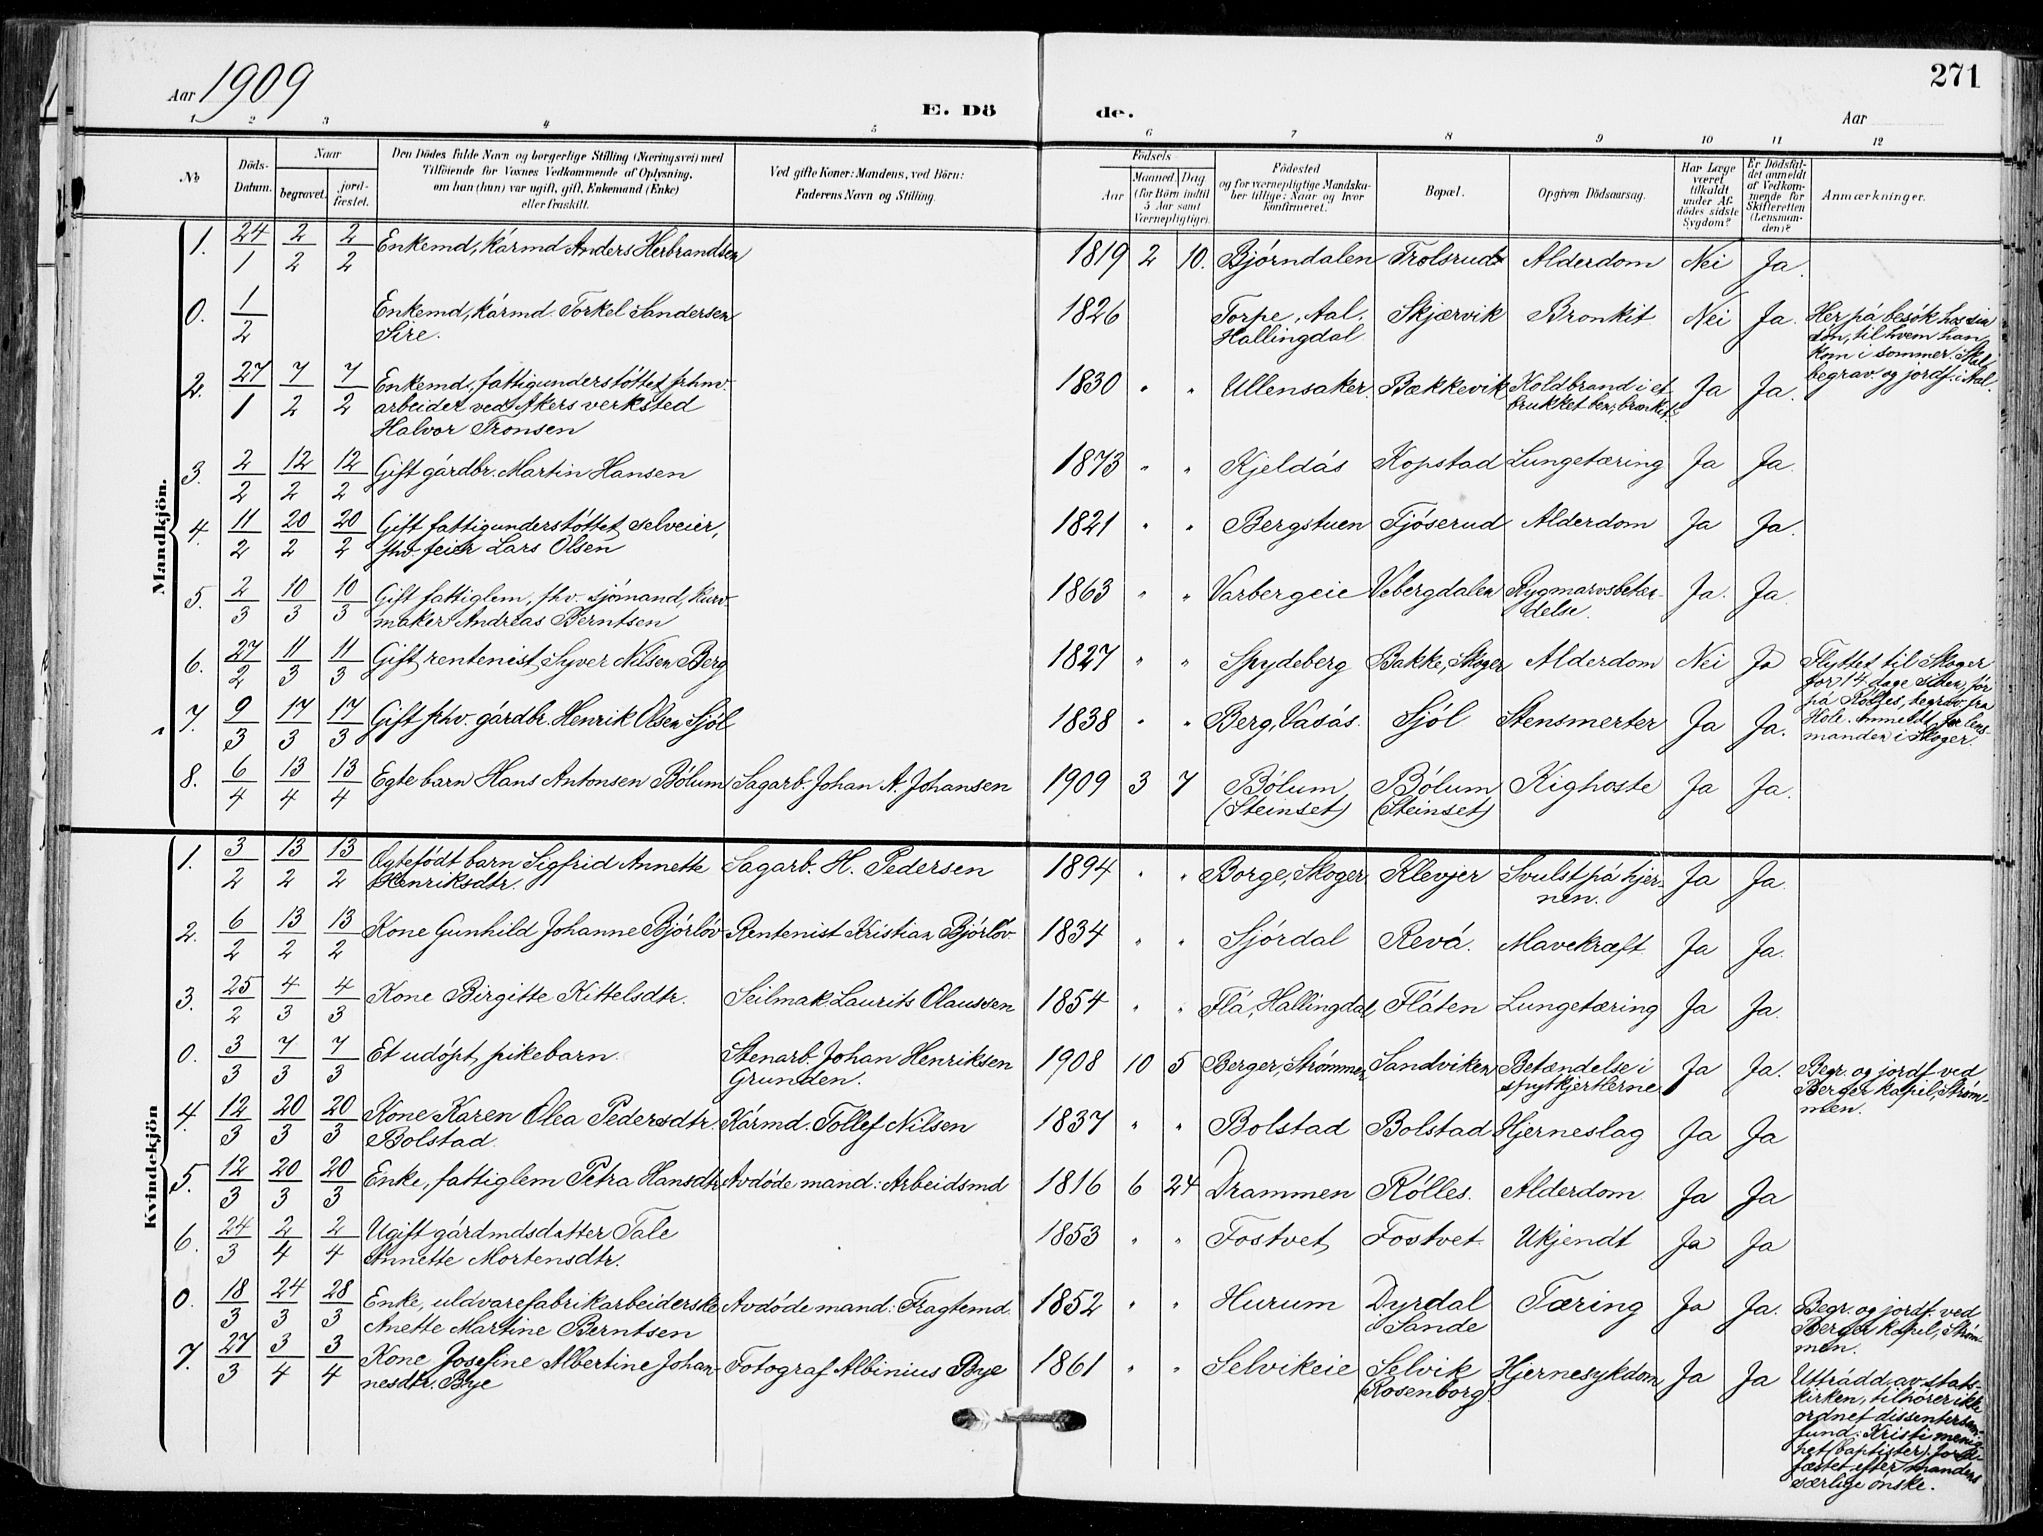 Aar 1909
E. Dö de.
271
Aar
1 2 3 4 5 6 7 8 9 10 11 12
No
Döds-Datum.
Naar
begravet.
jord-fæstet.
Den Dödes fulde Navn og borgerlige Stilling (Næringsvei) med
Tilföiende for Voxnes Vedkommende af Oplysning,
om han (hun) var ugift, gift, Enkemand (Enke)
eller fraskilt.
Ved gifte Koner: Mandens, ved Börn:
Faderens Navn og Stilling.
Födsels-
Aar
Maaned Dag
(for Börn indtil
5 Aar samt
Værnepligtige).
Födested
og for værnepligtige Mandska-
ber tillige: Naar og hvor
konfirmeret.
Bopæl.
Opgiven Dödsaarsag.
Har Læge
været
tilkaldt
under Af-
dödes sidste
Sygdom?
Er Dödsfal-
det anmeldt
af Vedkom-
mende for
Skifteretten
(Lensman-
den)?
Anmærkninger.
Mandkjön.
1. 24/1 2/2 2/2 Enkemd, kårmd Anders Herbrandsen 1819 2 10. Bjørndalen Trolsrud Alderdom Nei Ja.
0. 1/2 Enkemd, kårmd. Torkel Sandersen 1826 Torpe, Aal, Skjærvik Bronkit Nei Ja. Her på besök hos sin
Sire. Hallingdal sön, til hvem han
kom i sommer. Skal
begrav. og jordf. i Aal.
2. 27/1 7/2 7/2 Enkemd., fattigunderstöttet, fhv. 1830 " " Ullensaker. Bækkevik Koldbrand i et Ja Ja.
arbeider ved Akers verksted brukket ben; bronkit.
Halvor Tronsen
3. 2/2 12/2 12/2 Gift gårdbr. Martin Hansen 1873 " " Kjeldås Kopstad Lungetæring Ja Ja.
4. 11/2 20/2 20/2 Gift fattigunderstöttet selveier, 1821 " " Bergstuen Tjöserud Alderdom Ja Ja.
fhv. feier Lars Olsen
5. 2/3 10/3 10/3 Gift fattiglem, fhv. sjömand, kurv- 1863 " " Varbergeie Vebergdalen Rygmarvsbetæn- Ja. Ja.
maker Andreas Berntsen delse.
6. 27/2 11/3 11/3 Gift rentenist Syver Nilsen Berg 1827 " " Spydeberg Bakke, Skoger Alderdom Nei Ja Flyttet til Skoger
for 14 dage siden, för
på Rölles, begrav. fra
7. 9/3 17/3 17/3 Gift fhv. gårdbr. Henrik Olsen Sjöl 1838 " " Berg, Vasås. Sjöl Stensmerter Ja Ja. Anmeldt for lens-
manden i Skoger.
8. 6/4 13/4 13/4 Egte barn Hans Antonsen Bölum Sagarb. Johan A. Johansen 1909 3 7 Bölum Bölum Kighoste Ja Ja.
(Steinset) (Steinset)
Kvindekjön
1. 3/2 13/2 13/2 Egtefödt barn Sigfrid Annette Sagarb. H. Pedersen 1894 " " Borge, Skoger Klevjer Svulst på hjer- Ja Ja.
Henriksdtr. nen.
2. 6/2 13/2 13/2 Kone Gunhild Johanne Björløv Rentenist Kristian Björløv. 1834 " " Sjördal Revå. Mavekræft Ja Ja.
3. 25/2 4/3 4/3 Kone Birgitte Kittelsdtr. Seilmak. Laurits Olaussen 1854 " " Flå, Hallingdal, Flåten Lungetæring Ja Ja.
0. 3/3 7/3 7/3 Et udöpt pikebarn. Stenarb. Johan Henriksen 1908 10 5 Berger, Strømmen Sandviken Betændelse i Ja Ja. Begr. og jordf. ved
Grunden. spytkjertlerne Berger kapel, Strøm-
men.
4. 12/3 20/3 20/3 Kone Karen Olea Pedersdtr. Kårmd. Tollef Nilsen 1837 " " Bolstad Bolstad Hjerneslag Ja Ja
Bolstad.
5. 12/3 20/3 20/3 Enke, fattiglem Petra Hansdtr Avdöde mand: Arbeidsmd 1816 6 24 Drammen Rölles. Alderdom Ja Ja
6. 24/3 2/4 2/4 Ugift gårdmdsdatter Tale 1853 " " Fostvet Fostvet. Ukjendt Ja Ja
Annette Mortensdtr.
0. 18/3 24/3 28/3 Enke, uldvarefabrikarbeiderske Avdöde mand: Fragtemd. 1852 " " Hurum Dyrdal Tæring Ja Ja. Begr. og jordf. ved
Anette Martine Berntsen i Sande Berger kapel, Strøm-
men.
7. 27/3 3/4 3/4 Kone Josefine Albertine Johan- Fotograf Albinius Bye 1861 " " Selvikeie Selvik Hjernesykdom Ja Ja Utträdd av stats-
nesdtr. Bye (Rosenborg) kirken, tilhörer ikke
ordnet dissentersam-
fund: Kristi menig-
het (baptister). Jord-
fæstet efter mandens
særlige önske.